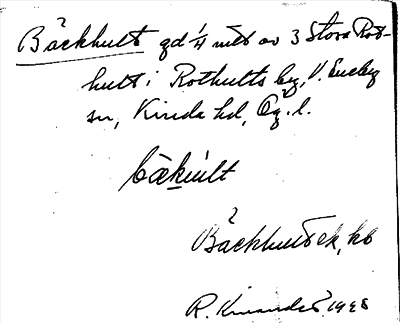 Bäckhult gd 1/4 mtl av 3 Stora Rot-
hult i Rothults by, V. Eneby
sn, Kinda hd, Ög. l.
bækult
Bäckhult ek, kb
R. 1928